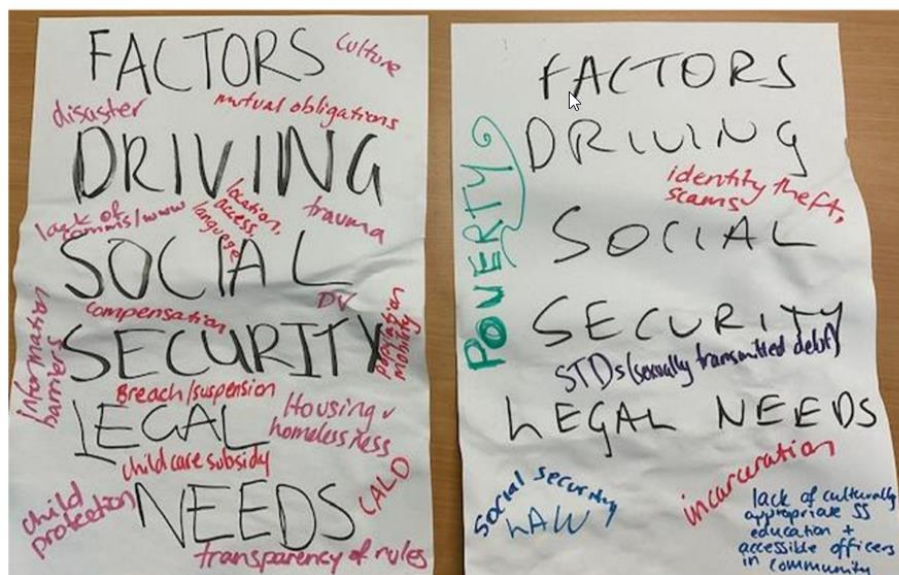 FACTORS
culture
disaster
mutual obligations
DRIVING
lack of
comms/www
location,
access,
language
trauma
SOCIAL
DV
compensation
population
mobility
Information
barriers
SECURITY
Breach/suspension
LEGAL
Housing
homelessness
child care subsidy
child
protection
NEEDS
CALD
transparency of rules
FACTORS
DRIVING
POVERTY
identity theft,
scams
SOCIAL
SECURITY
STDs (sexually transmitted debt)
LEGAL NEEDS
Social security
LAW
incarceration
lack of culturally
appropriate SS
education +
accessible officers
in community